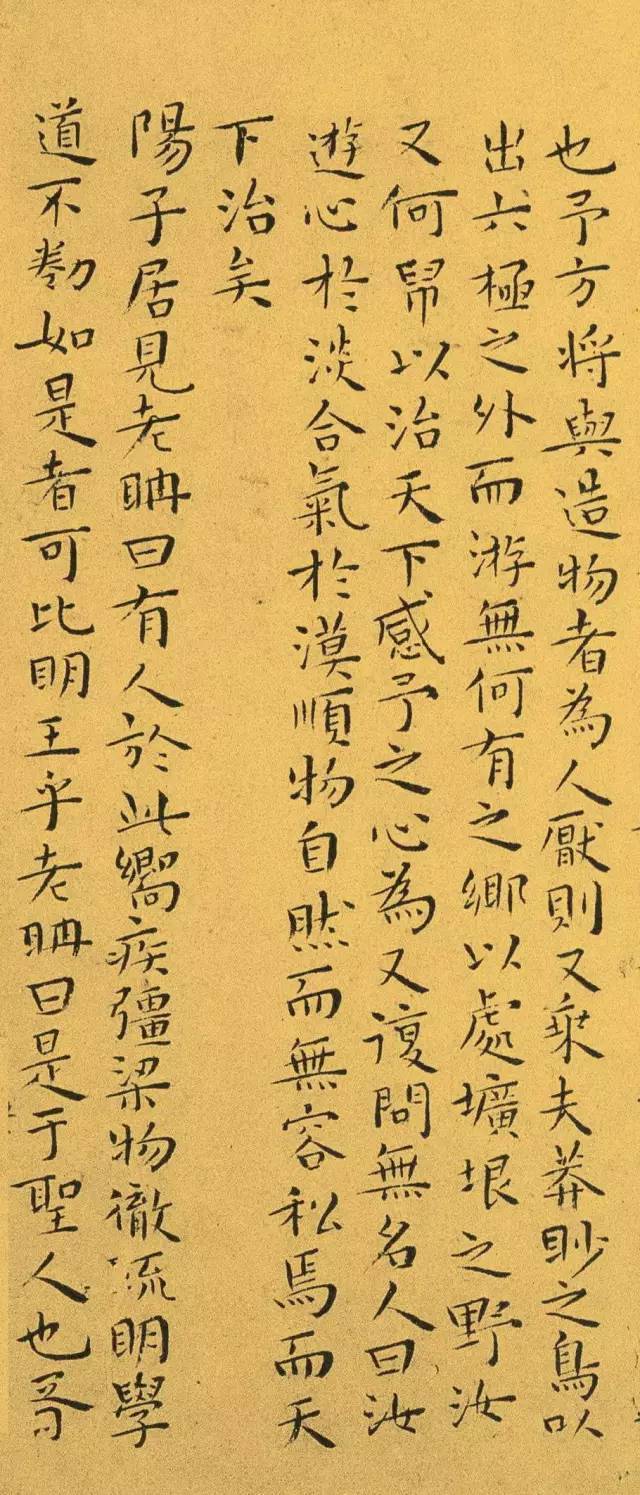 也予方将與造物者為人厭則又乗夫莽眇之鳥以
出六極之外而游無何有之鄉以處壙埌之野汝
又何帠以治天下感予之心為又復問無名人曰汝
遊心於淡合氣於漠順物自然而無容私焉而天
下治矣
陽子居見老聃曰有人於此嚮疾彊梁物徹流明學
道不勌如是者可比明王乎老聃曰是于聖人也胥